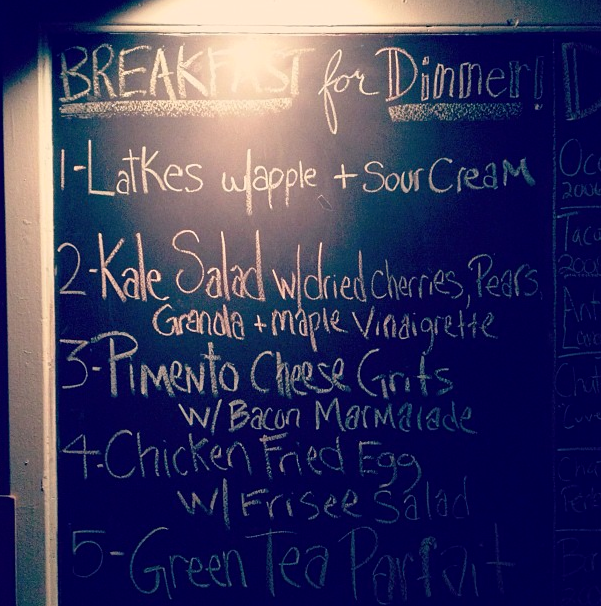 BREAKFAST for Dinner!
1-Latkes w/apple + Sour Cream
2-Kale Salad w/dried cherries, Pears,
Granola + maple Vinaigrette
3-Pimento Cheese Grits
w/ Bacon Marmalade
4-Chicken Fried Egg
w/ Frisee Salad
5-Green Tea Parfait
D
Oc
2006
Taco